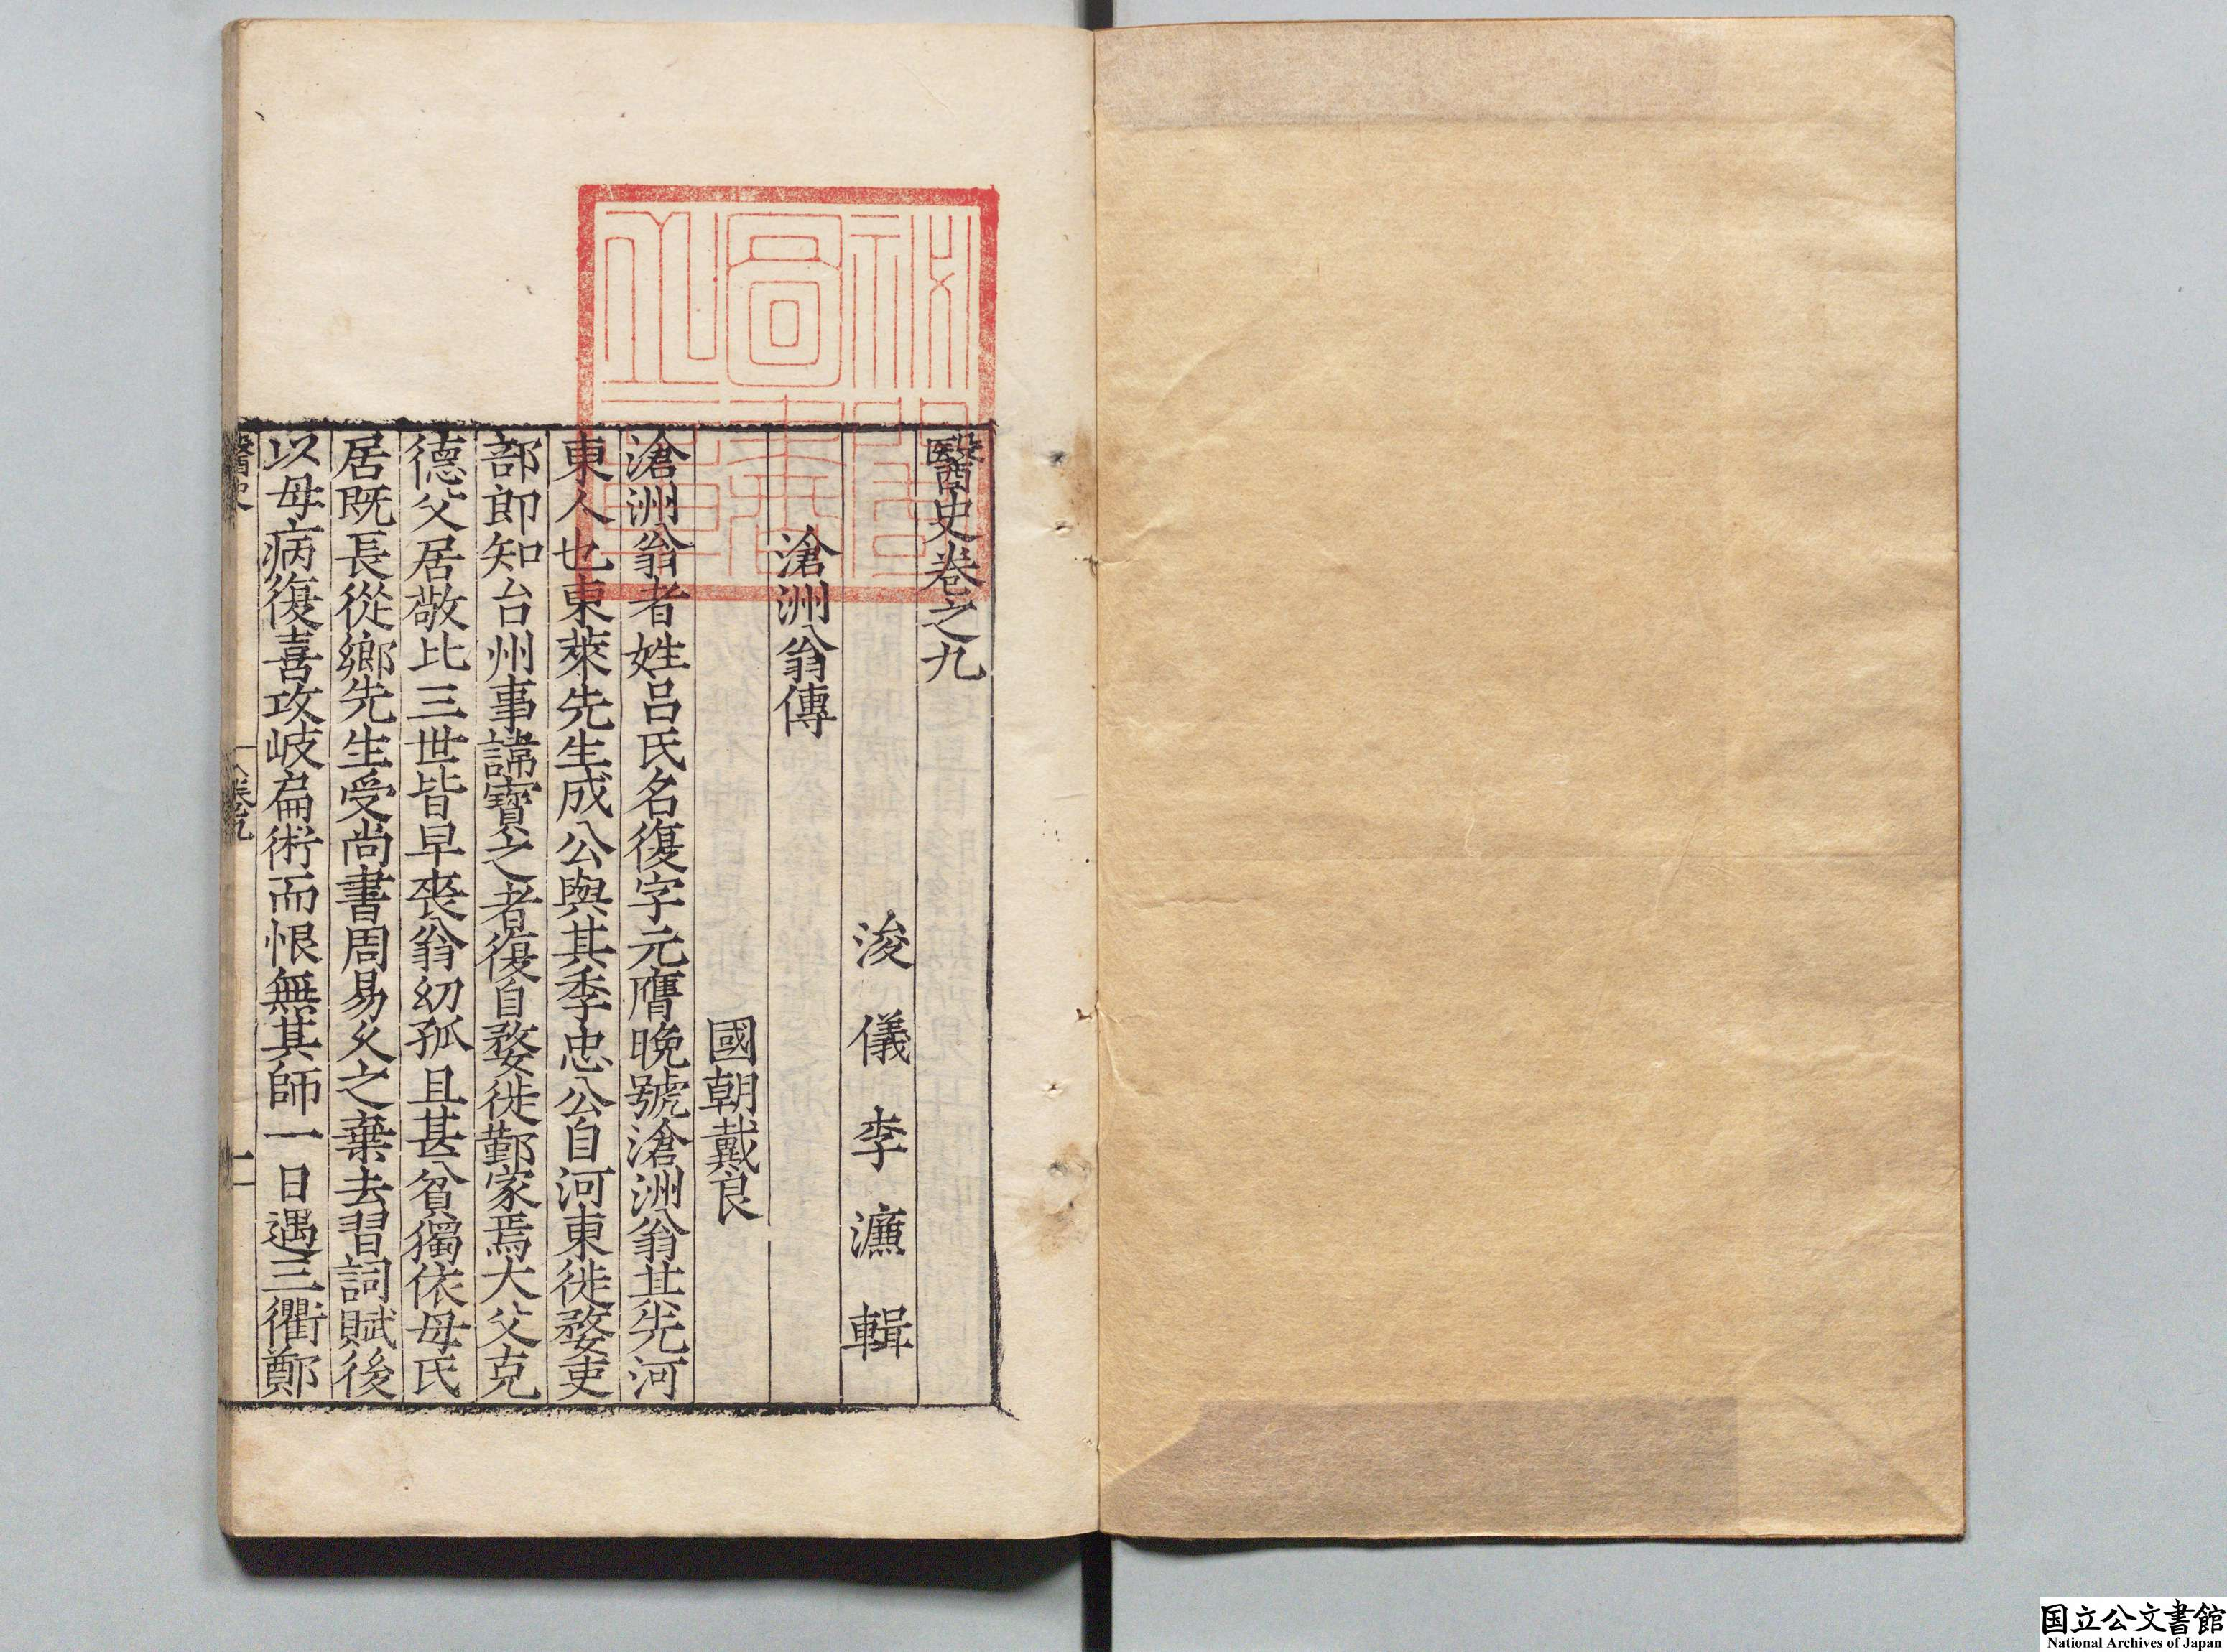 醫史卷之九
浚儀李濂輯
滄洲翁傳
國朝戴良
滄洲翁者姓呂氏名復字元膺晚號滄洲翁其先河
東人也東萊先生成公與其季忠公自河東徙婺吏
部郎知台州事諱寶之者復自婺徙鄞家焉大父克
德父居敬比三世皆早喪翁幼孤且甚貧獨依母氏
居既長從鄉先生受尚書周易久之棄去習詞賦後
以母病復喜攻岐扁術而恨無其師一日遇三衢鄭
醫史
卷九
一
国立公文書館
National Archives of Japan